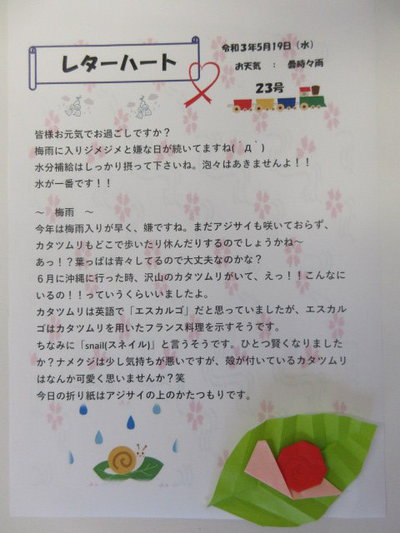 レターハート
令和３年５月１９日（水）
お天気　：　曇時々雨
23号
皆様お元気でお過ごしですか？
梅雨に入りジメジメと嫌な日が続いてますね(´Д｀)
水分補給はしっかり摂って下さいね。泡々はあきませんよ！！
水が一番です！！
～　梅雨　～
今年は梅雨入りが早く、嫌ですね。まだアジサイも咲いておらず、
カタツムリもどこで歩いたり休んだりするのでしょうかね～
あっ！？葉っぱは青々してるので大丈夫なのかな？
６月に沖縄に行った時、沢山のカタツムリがいて、えっ！！こんなに
いるの！！っていうくらいいましたよ。
カタツムリは英語で「エスカルゴ」だと思っていましたが、エスカル
ゴはカタツムリを用いたフランス料理を示すそうです。
ちなみに「snail(スネイル)」と言うそうです。ひとつ賢くなりました
か？ナメクジは少し気持ちが悪いですが、殻が付いているカタツムリ
はなんか可愛く思いませんか？笑
今日の折り紙はアジサイの上のかたつもりです。